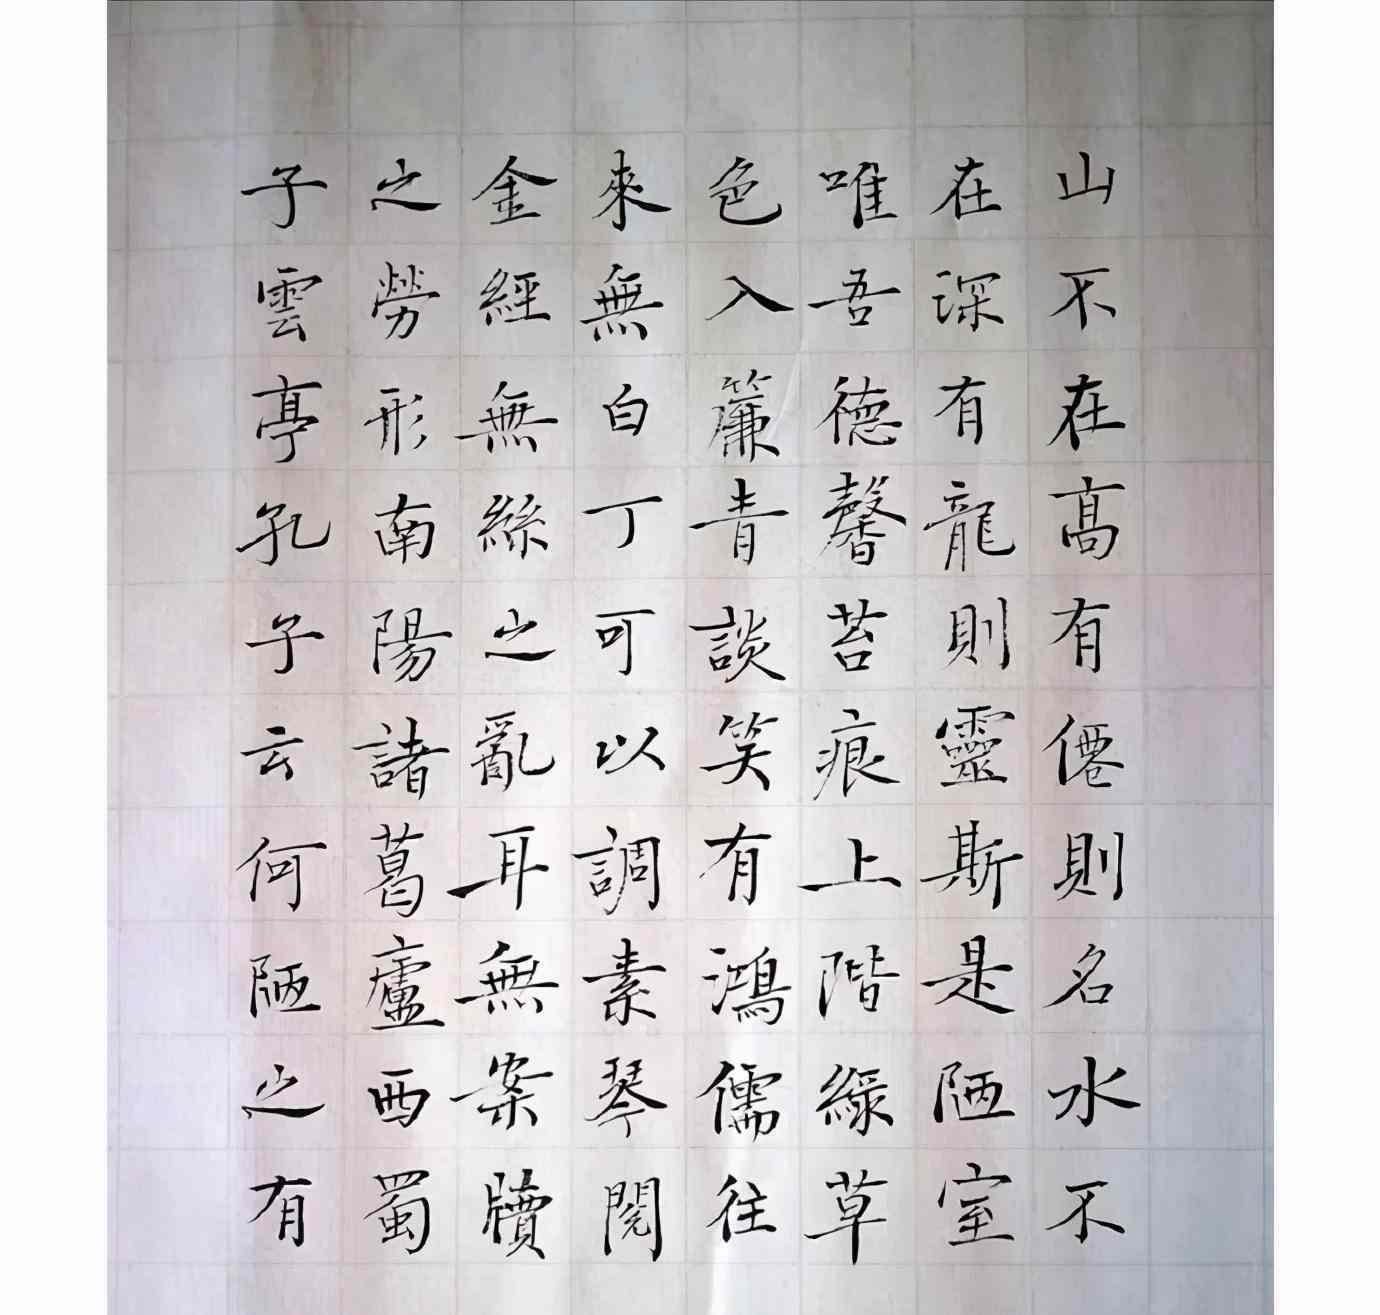 山不在高有僊則名水不
在深有龍則靈斯是陋室
唯吾德馨苔痕上階綠草
色入簾青談笑有鴻儒往
來無白丁可以調素琴閱
金經無絲之亂耳無案牘
之勞形南陽諸葛廬西蜀
子雲亭孔子云何陋之有